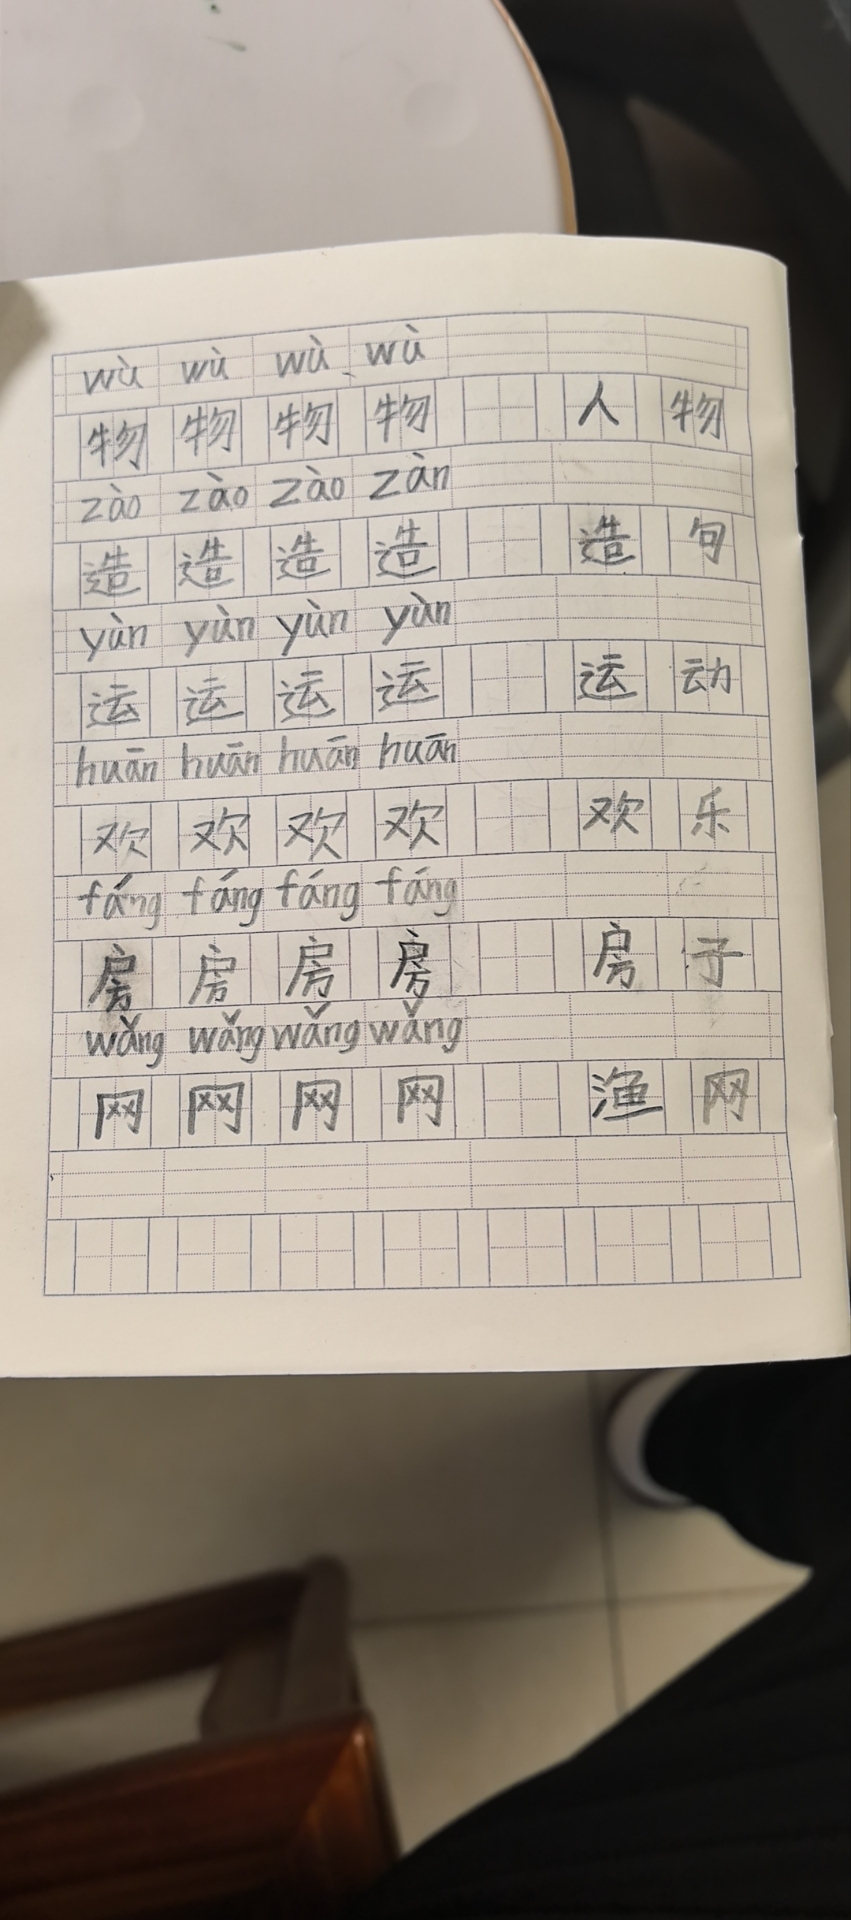 wù wù wù wù
物 物 物 物 人 物
zào zào zào zàn
造 造 造 造 造 句
yùn yùn yùn yùn
运 运 运 运 运 动
huān huān huān huān
欢 欢 欢 欢 欢 乐
fáng fáng fáng fáng
房 房 房 房 房 子
wǎng wǎng wǎng wǎng
网 网 网 网 渔 网